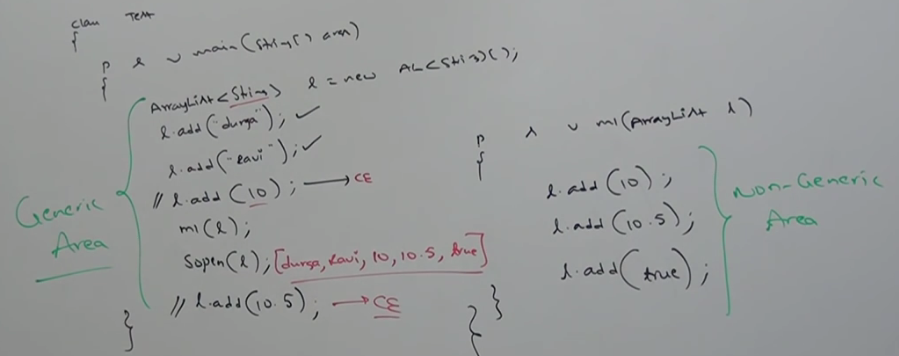 class Test
{
p s v main(String[] args)
{
ArrayList<String> l = new AL<String>();
l.add("durga"); ✓
l.add("ravi"); ✓
// l.add(10); → CE
m1(l);
Sopln(l); [durga, ravi, 10, 10.5, true]
// l.add(10.5); → CE
}
Generic
Area
p s v m1(ArrayList l)
{
l.add(10);
l.add(10.5);
l.add(true);
}
}
Non-Generic
Area